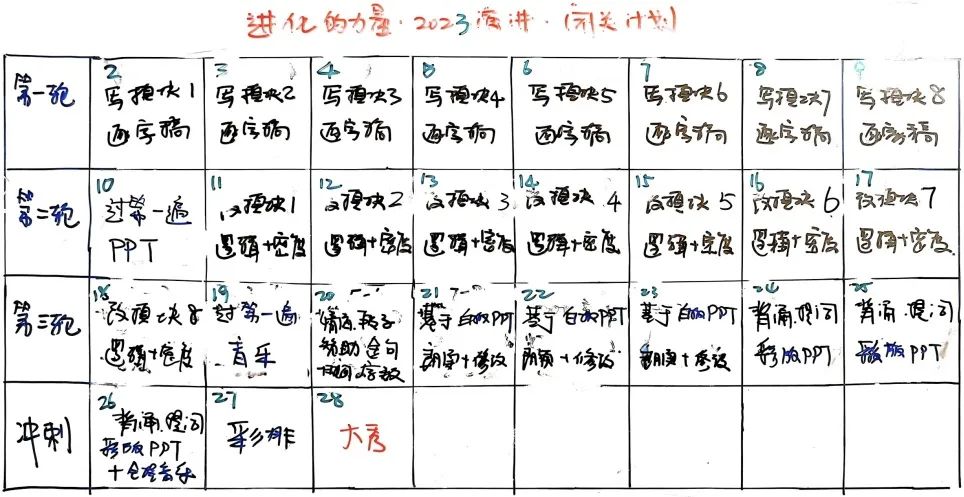 进化的力量·2023演讲·(闭关计划)
第一稿
2
写模块1
逐字稿
3
写模块2
逐字稿
4
写模块3
逐字稿
5
写模块4
逐字稿
6
写模块5
逐字稿
7
写模块6
逐字稿
8
写模块7
逐字稿
9
写模块8
逐字稿
第二稿
10
过第一遍
PPT
11
改模块1
逻辑+密度
12
改模块2
逻辑+密度
13
改模块3
逻辑+密度
14
改模块4
逻辑+密度
15
改模块5
逻辑+密度
16
改模块6
逻辑+密度
17
改模块7
逻辑+密度
第三稿
18
改模块8
逻辑+密度
19
过第一遍
音乐
20
金句
21
基于白板PPT
朗读+修改
22
基于白板PPT
朗读+修改
23
基于白板PPT
朗读+修改
24
背诵.提词
彩版PPT
25
背诵.提词
彩版PPT
冲刺
26
背诵.提词
彩版PPT
+合成音乐
27
彩排
28
大秀